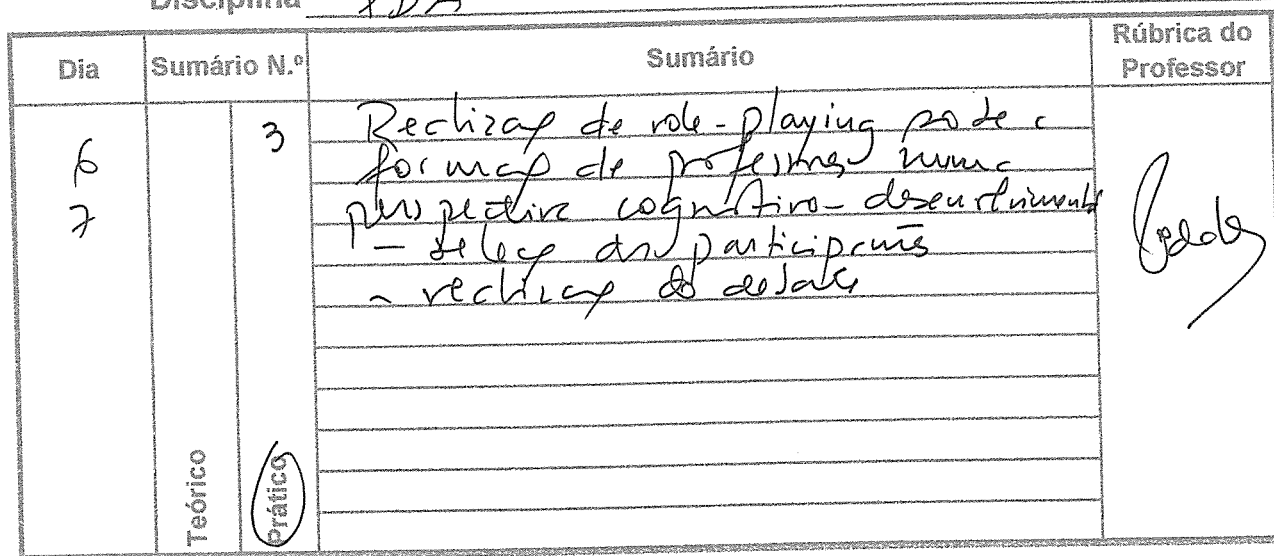 Disciplina PDA
Dia
Sumário N.º
Sumário
Rúbrica do
Professor
6
7
3
Realização de role-playing sobre a
formação de professores numa
perspectiva cognitivo-desenvolvimental
- seleção dos participantes
- realização do debate
Teórico
Prático